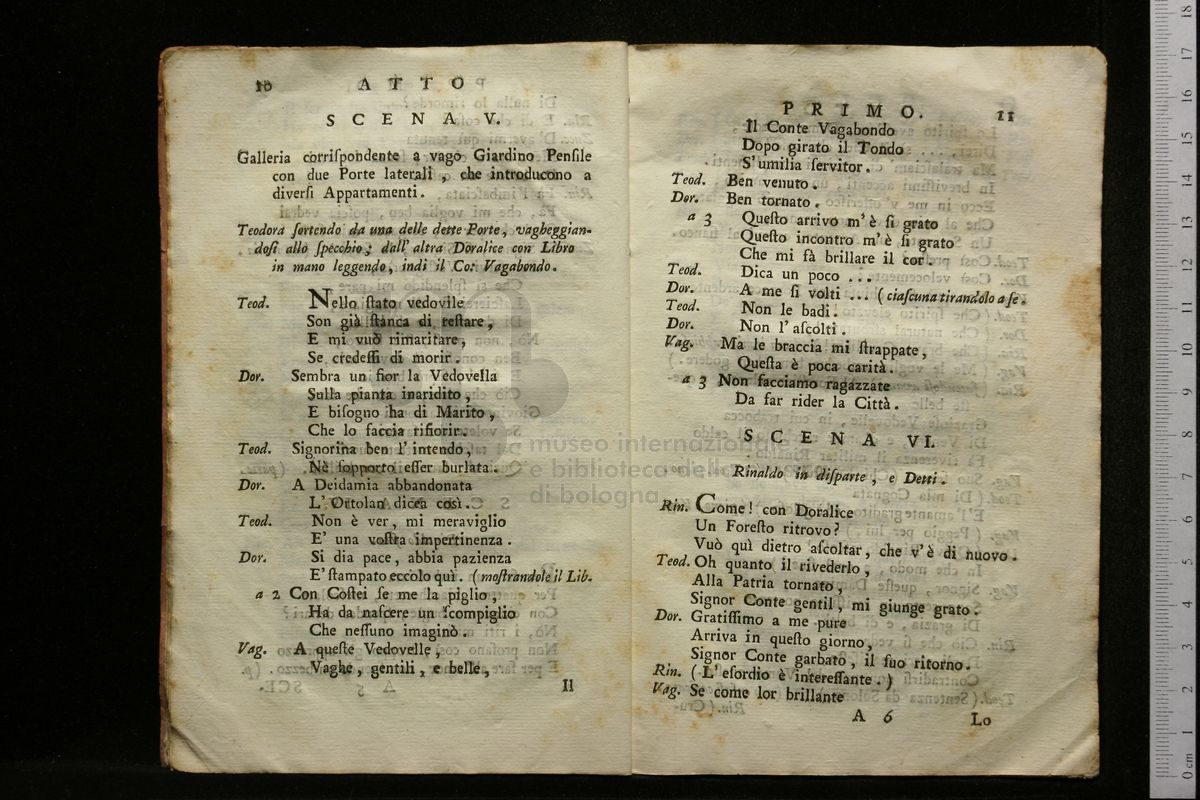 10 ATTO
SCENA V.
Galleria corriſpondente a vago Giardino Penſile
con due Porte laterali, che introducono a
diverſi Appartamenti.
Teodora ſortendo da una delle dette Porte, vagheggian-
doſi allo ſpecchio; dall' altra Doralice con Libro
in mano leggendo, indi il Co: Vagabondo.
Teod. Nello ſtato vedovile
Son già ſtanca di reſtare,
E mi vuò rimaritare,
Se credeſſi di morir.
Dor. Sembra un fior la Vedovella
Sulla pianta inaridito,
E biſogno ha di Marito,
Che lo faccia rifiorir.
Teod. Signorina ben l' intendo,
Nè ſopporto eſſer burlata.
Dor. A Deidamia abbandonata
L' Ortolan dicea così.
Teod. Non è ver, mi meraviglio
E' una voſtra impertinenza.
Dor. Si dia pace, abbia pazienza
E' ſtampato eccolo quì. (moſtrandole il Lib.
a 2 Con Coſtei ſe me la piglio,
Ha da naſcere un ſcompiglio
Che neſſuno imaginò.
Vag. A queſte Vedovelle,
Vaghe, gentili, e belle,
Il
PRIMO. 11
Il Conte Vagabondo
Dopo girato il Tondo
S' umilia ſervitor.
Teod. Ben venuto.
Dor. Ben tornato.
a 3 Queſto arrivo m' è ſi grato
Queſto incontro m' è ſi grato
Che mi fà brillare il cor.
Teod. Dica un poco ...
Dor. A me ſi volti ... (ciaſcuna tirandolo a ſe.
Teod. Non le badi.
Dor. Non l' aſcolti.
Vag. Ma le braccia mi ſtrappate,
Queſta è poca carità.
a 3 Non facciamo ragazzate
Da far rider la Città.
SCENA VI.
Rinaldo in diſparte, e Detti.
Rin. Come! con Doralice
Un Foreſto ritrovo?
Vuò quì dietro aſcoltar, che v' è di nuovo.
Teod. Oh quanto il rivederlo,
Alla Patria tornato,
Signor Conte gentil, mi giunge grato.
Dor. Gratiſſimo a me pure
Arriva in queſto giorno,
Signor Conte garbato, il ſuo ritorno.
Rin. (L' eſordio è intereſſante.)
Vag. Se come lor brillante
A 6 Lo
museo internazionale
e biblioteca della
di bologna
0 cm 1 2 3 4 5 6 7 8 9 10 11 12 13 14 15 16 17 18